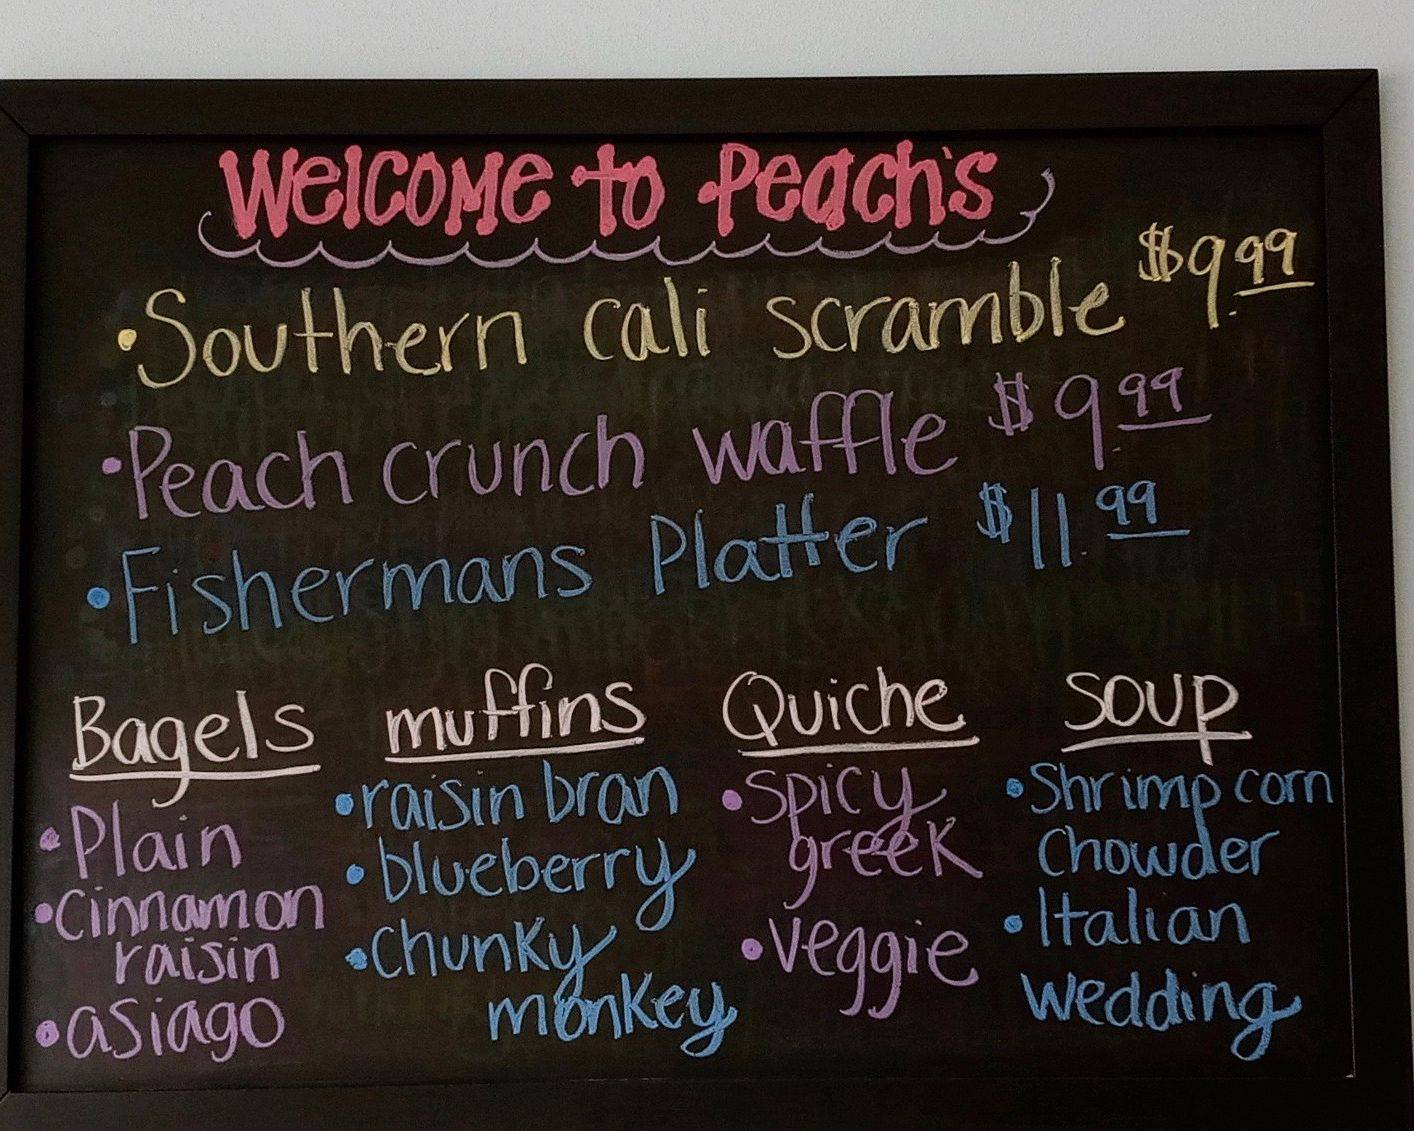 Welcome to Peach's
•Southern cali scramble $9.99
•Peach crunch waffle $9.99
•Fishermans Platter $11.99
Bagels
•Plain
•Cinnamon
raisin
•asiago
muffins
•raisin bran
•blueberry
•chunky
monkey
Quiche
•spicy
greek
•veggie
soup
•Shrimp corn
Chowder
•Italian
wedding